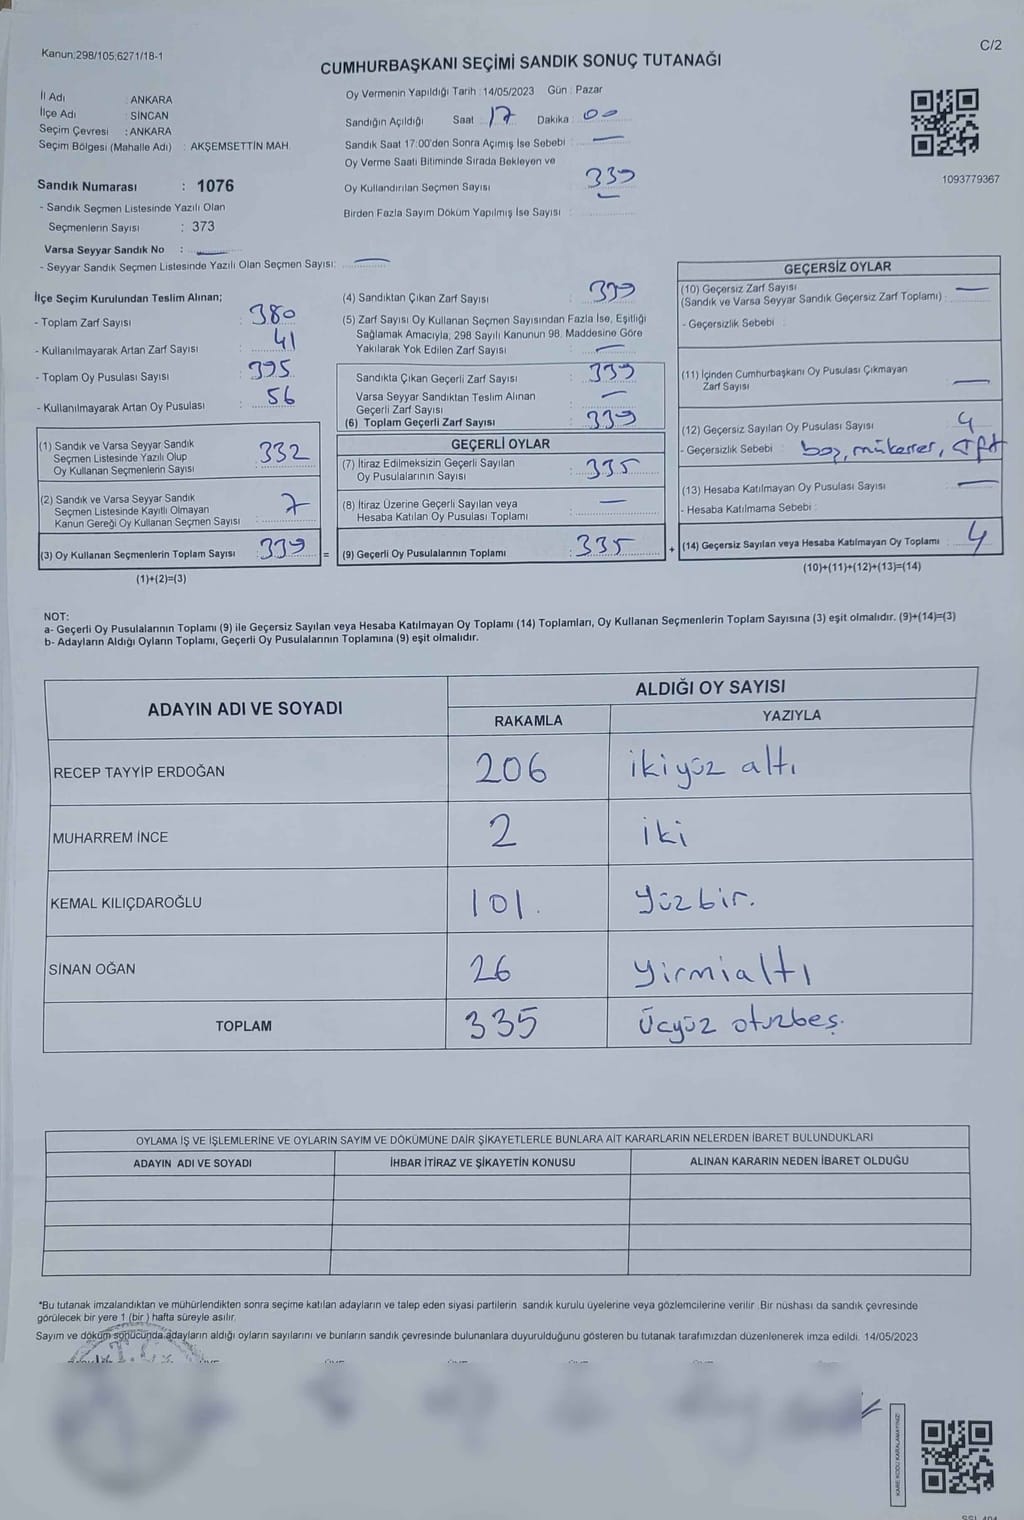 Kanun:298/105;6271/18-1
C/2
CUMHURBAŞKANI SEÇİMİ SANDIK SONUÇ TUTANAĞI
İl Adı : ANKARA
İlçe Adı : SİNCAN
Seçim Çevresi : ANKARA
Seçim Bölgesi (Mahalle Adı) : AKŞEMSETTİN MAH.
Oy Vermenin Yapıldığı Tarih : 14/05/2023 Gün : Pazar
Sandığın Açıldığı Saat 17 Dakika : 00
Sandık Saat 17:00'den Sonra Açımış İse Sebebi : —
Oy Verme Saati Bitiminde Sırada Bekleyen ve
Oy Kullandırılan Seçmen Sayısı 339
Birden Fazla Sayım Döküm Yapılmış İse Sayısı :
1093779367
Sandık Numarası : 1076
- Sandık Seçmen Listesinde Yazılı Olan
Seçmenlerin Sayısı : 373
Varsa Seyyar Sandık No : —
- Seyyar Sandık Seçmen Listesinde Yazılı Olan Seçmen Sayısı: —
İlçe Seçim Kurulundan Teslim Alınan;
- Toplam Zarf Sayısı : 380
- Kullanılmayarak Artan Zarf Sayısı : 41
- Toplam Oy Pusulası Sayısı : 395
- Kullanılmayarak Artan Oy Pusulası : 56
(1) Sandık ve Varsa Seyyar Sandık
Seçmen Listesinde Yazılı Olup
Oy Kullanan Seçmenlerin Sayısı 332
(2) Sandık ve Varsa Seyyar Sandık
Seçmen Listesinde Kayıtlı Olmayan
Kanun Gereği Oy Kullanan Seçmen Sayısı 7
(3) Oy Kullanan Seçmenlerin Toplam Sayısı : 339 =
(1)+(2)=(3)
(4) Sandıktan Çıkan Zarf Sayısı : 339
(5) Zarf Sayısı Oy Kullanan Seçmen Sayısından Fazla İse, Eşitliği
Sağlamak Amacıyla; 298 Sayılı Kanunun 98. Maddesine Göre
Yakılarak Yok Edilen Zarf Sayısı : —
Sandıkta Çıkan Geçerli Zarf Sayısı : 339
Varsa Seyyar Sandıktan Teslim Alınan
Geçerli Zarf Sayısı : —
(6) Toplam Geçerli Zarf Sayısı : 339
GEÇERLİ OYLAR
(7) İtiraz Edilmeksizin Geçerli Sayılan
Oy Pusulalarının Sayısı : 335
(8) İtiraz Üzerine Geçerli Sayılan veya
Hesaba Katılan Oy Pusulası Toplamı : —
(9) Geçerli Oy Pusulalarının Toplamı : 335 +
GEÇERSİZ OYLAR
(10) Geçersiz Zarf Sayısı
(Sandık ve Varsa Seyyar Sandık Geçersiz Zarf Toplamı) : —
- Geçersizlik Sebebi :
(11) İçinden Cumhurbaşkanı Oy Pusulası Çıkmayan
Zarf Sayısı —
(12) Geçersiz Sayılan Oy Pusulası Sayısı : 4
- Geçersizlik Sebebi : boş, mükerrer, çift
(13) Hesaba Katılmayan Oy Pusulası Sayısı : —
- Hesaba Katılmama Sebebi :
(14) Geçersiz Sayılan veya Hesaba Katılmayan Oy Toplamı : 4
(10)+(11)+(12)+(13)=(14)
NOT:
a- Geçerli Oy Pusulalarının Toplamı (9) ile Geçersiz Sayılan veya Hesaba Katılmayan Oy Toplamı (14) Toplamları, Oy Kullanan Seçmenlerin Toplam Sayısına (3) eşit olmalıdır. (9)+(14)=(3)
b- Adayların Aldığı Oyların Toplamı, Geçerli Oy Pusulalarının Toplamına (9) eşit olmalıdır.
ADAYIN ADI VE SOYADI
ALDIĞI OY SAYISI
RAKAMLA YAZIYLA
RECEP TAYYİP ERDOĞAN 206 ikiyüz altı
MUHARREM İNCE 2 iki
KEMAL KILIÇDAROĞLU 101. Yüzbir.
SİNAN OĞAN 26 Yirmialtı
TOPLAM 335 Üçyüz otuzbeş.
OYLAMA İŞ VE İŞLEMLERİNE VE OYLARIN SAYIM VE DÖKÜMÜNE DAİR ŞİKAYETLERLE BUNLARA AİT KARARLARIN NELERDEN İBARET BULUNDUKLARI
ADAYIN ADI VE SOYADI İHBAR İTİRAZ VE ŞİKAYETİN KONUSU ALINAN KARARIN NEDEN İBARET OLDUĞU
*Bu tutanak imzalandıktan ve mühürlendikten sonra seçime katılan adayların ve talep eden siyasi partilerin sandık kurulu üyelerine veya gözlemcilerine verilir .Bir nüshası da sandık çevresinde
görülecek bir yere 1 (bir ) hafta süreyle asılır.
Sayım ve döküm sonucunda adayların aldığı oyların sayılarını ve bunların sandık çevresinde bulunanlara duyurulduğunu gösteren bu tutanak tarafımızdan düzenlenerek imza edildi. 14/05/2023
T.C.
KARE KODU KARALAMAYINIZ!